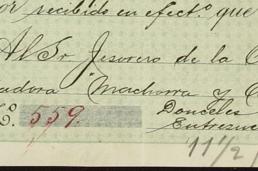 or recibido en efect.º que
Al Sr Tesorero de la C
adora Machorra y C
C.º 559. Donceles
Entresue
11 1/2